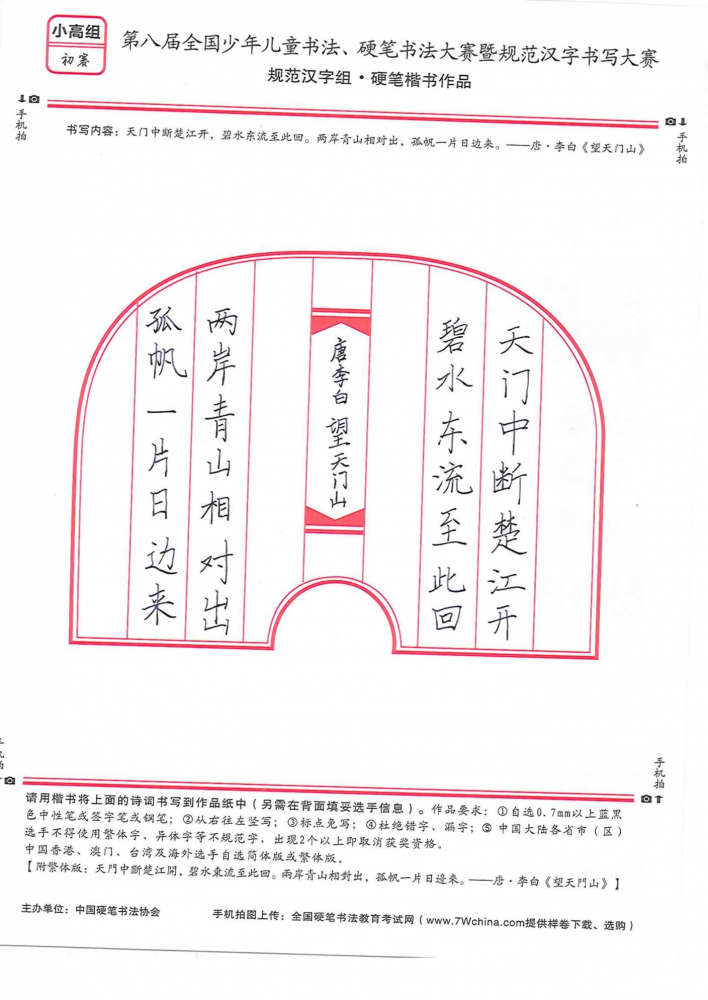 小高组
初赛
第八届全国少年儿童书法、硬笔书法大赛暨规范汉字书写大赛
规范汉字组·硬笔楷书作品
手机拍
手机拍
书写内容：天门中断楚江开，碧水东流至此回。两岸青山相对出，孤帆一片日边来。——唐·李白《望天门山》
天门中断楚江开
碧水东流至此回
唐李白 望天门山
两岸青山相对出
孤帆一片日边来
手机拍
手机拍
请用楷书将上面的诗词书写到作品纸中（另需在背面填妥选手信息）。作品要求：①自选0.7mm以上蓝黑
色中性笔或签字笔或钢笔；②从右往左竖写；③标点免写；④杜绝错字、漏字；⑤中国大陆各省市（区）
选手不得使用繁体字、异体字等不规范字，出现2个以上即取消获奖资格。
中国香港、澳门、台湾及海外选手自选简体版或繁体版。
【附繁体版：天門中斷楚江開，碧水東流至此回。兩岸青山相對出，孤帆一片日邊來。——唐·李白《望天門山》】
主办单位：中国硬笔书法协会
手机拍图上传：全国硬笔书法教育考试网（www.7Wchina.com提供样卷下载、选购）